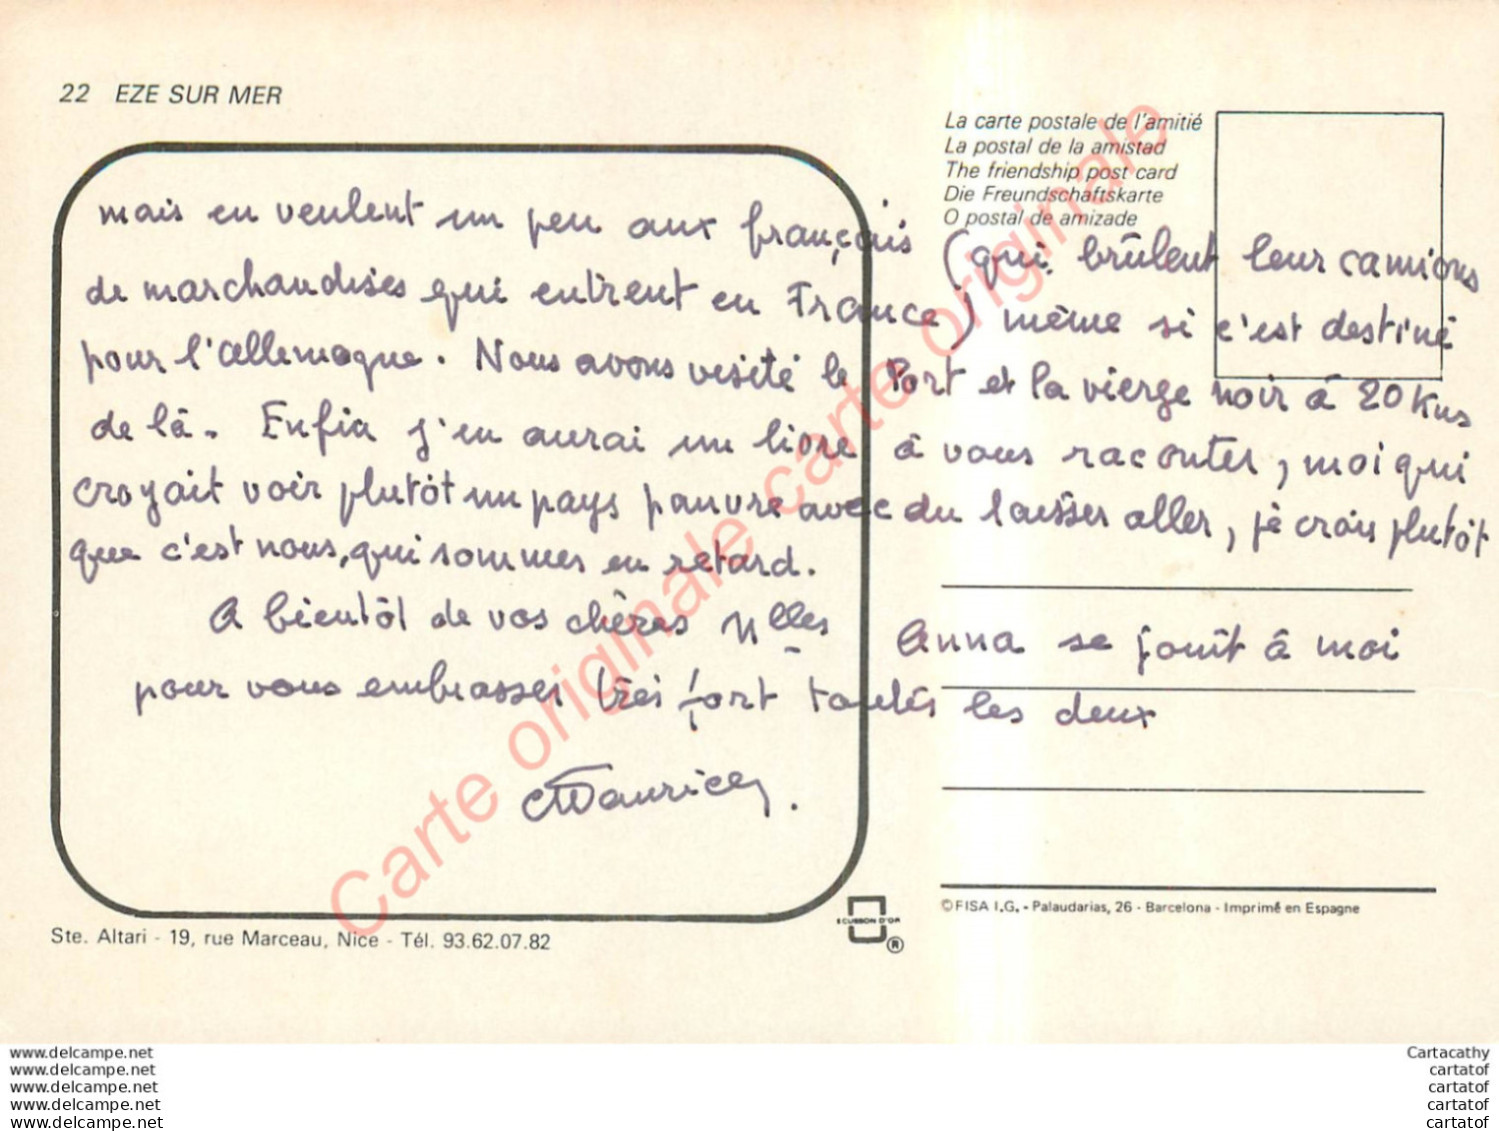 22 EZE SUR MER
La carte postale de l'amitié
La postal de la amistad
The friendship post card
Die Freundschaftskarte
O postal de amizade
mais en veulent un peu aux français (qui brûlent leur camions
de marchandises qui entrent en France) même si c'est destiné
pour l'allemagne. Nous avons visité le Port et la vierge noir à 20 Kms
de là. Enfin j'en aurai un livre à vous raconter, moi qui
croyait voir plutôt un pays pauvre avec du laisser aller, je crois plutôt
que c'est nous, qui sommes en retard.
A bientôt de vos chères Nlles Anna se joint à moi
pour vous embrasser très fort toutes les deux
Maurice.
Carte originale carte originale
ECUSSON D'OR
®
©FISA I.G. - Palaudarias, 26 - Barcelona - Imprimé en Espagne
Ste. Altari - 19, rue Marceau, Nice - Tél. 93.62.07.82
www.delcampe.net
www.delcampe.net
www.delcampe.net
www.delcampe.net
www.delcampe.net
Cartacathy
cartatof
cartatof
cartatof
cartatof